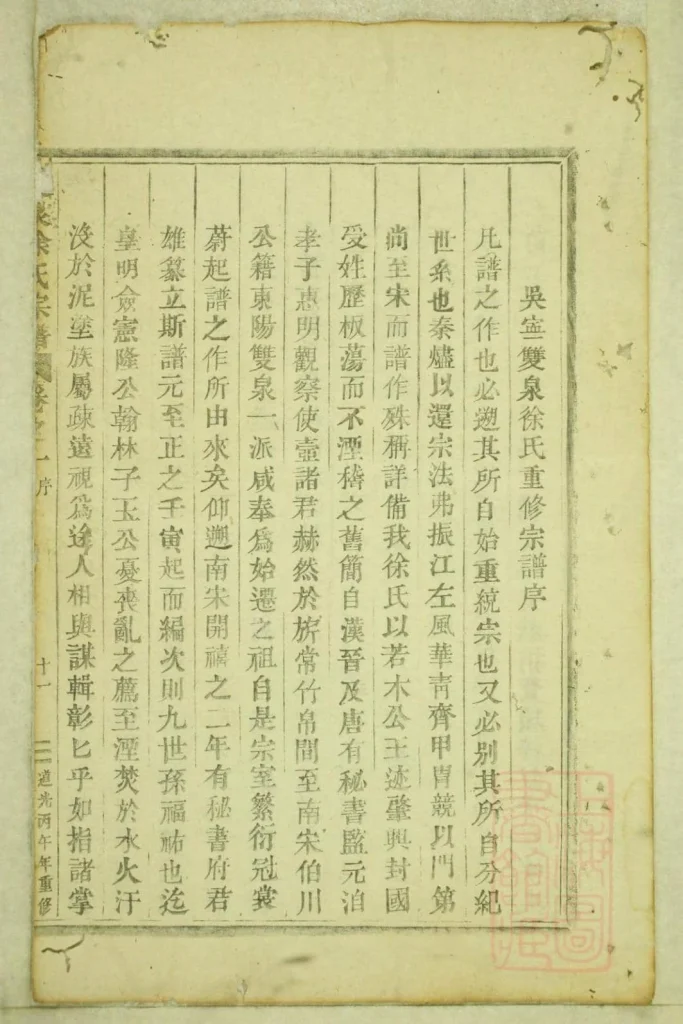 吳寧雙泉徐氏重修宗譜序
凡譜之作也必遡其所自始重統宗也又必別其所自分紀
世系也秦燼以還宗法弗振江左風華靑齊甲冑競以門第
尚至宋而譜作殊稱詳備我徐氏以若木公王迹肇興封國
受姓歷板蕩而不湮稽之舊簡自漢晉及唐有秘書監元洎
孝子惠明觀察使壼諸君赫然於旂常竹帛間至南宋伯川
公籍東陽雙泉一派咸奉爲始遷之祖自是宗室繁衍冠裳
蔚起譜之作所由來矣仰遡南宋開禧之二年有秘書府君
雄篆立斯譜元至正之壬寅起而編次則九世孫福祐也迄
皇明僉憲隆公翰林子玉公憂喪亂之薦至湮焚於水火汙
沒於泥塗族屬疎遠視爲途人相與謀輯彰匕乎如指諸掌
徐氏宗譜 卷之一 序 十一 道光丙午年重修